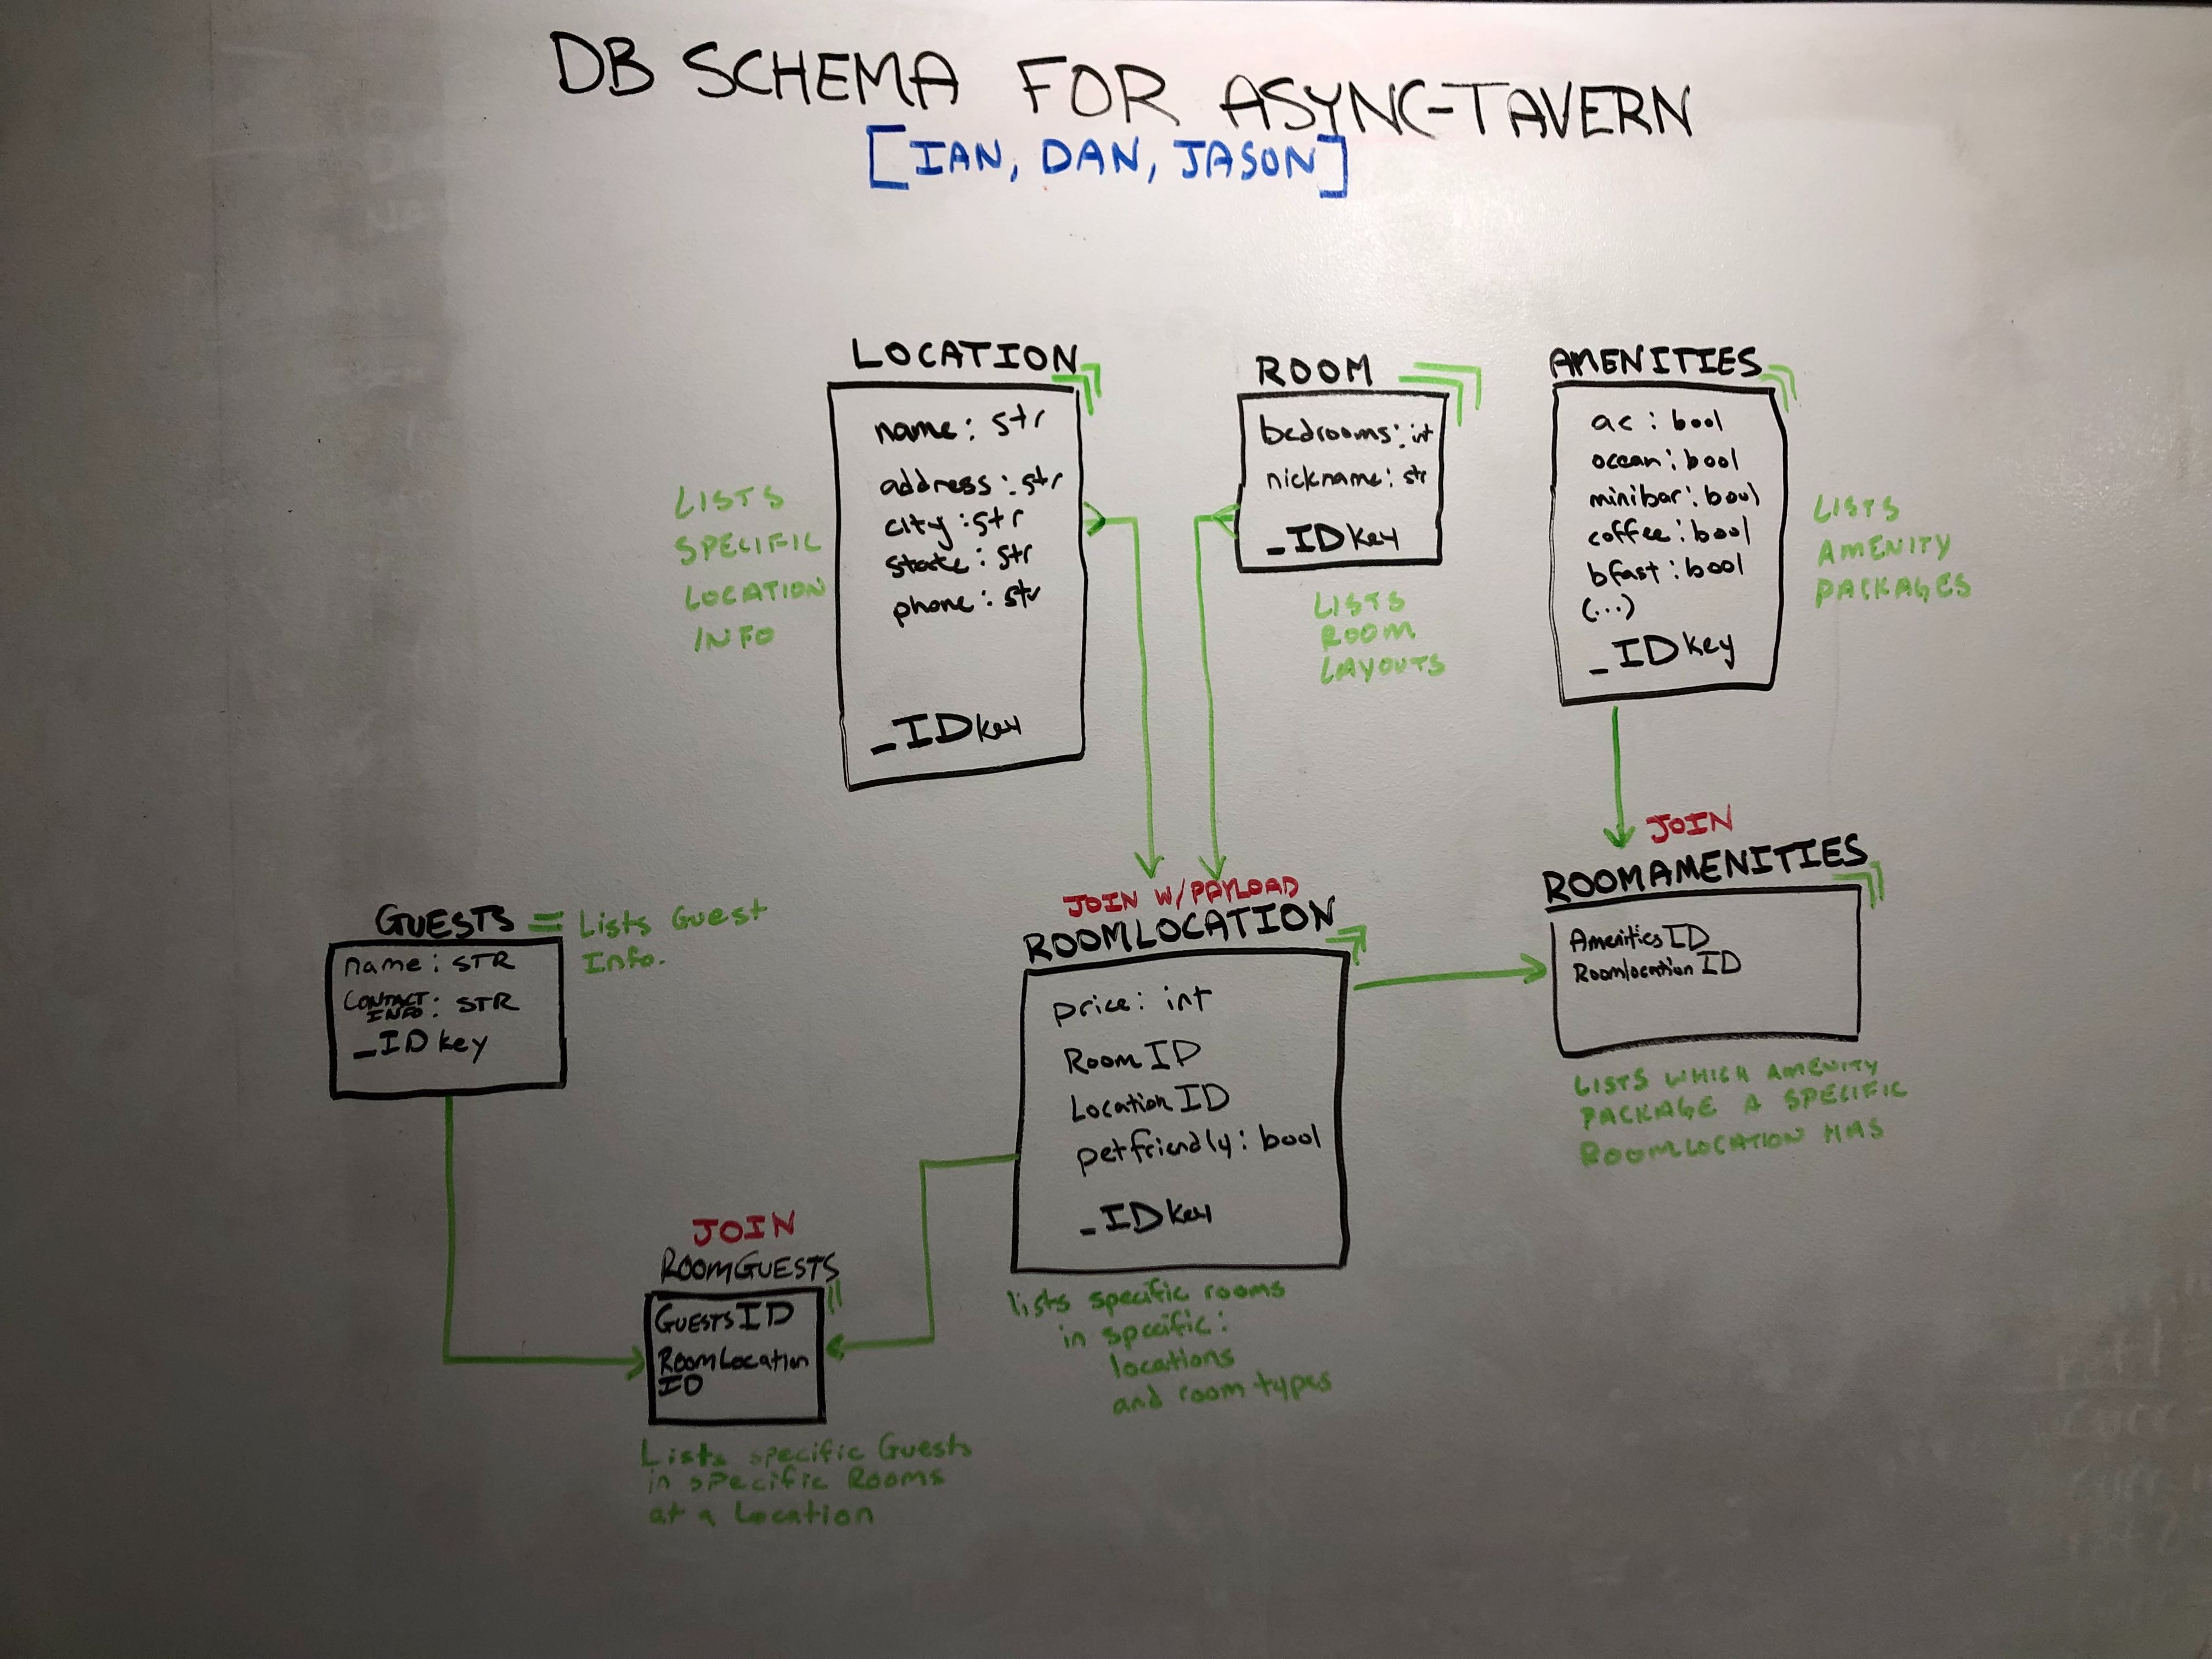 DB SCHEMA FOR ASYNC-TAVERN
[IAN, DAN, JASON]
LOCATION
name: str
address: str
city: str
state: str
phone: str
_ID key
LISTS
SPECIFIC
LOCATION
INFO
ROOM
bedrooms: int
nickname: str
_ID key
LISTS
ROOM
LAYOUTS
AMENITIES
ac: bool
ocean: bool
minibar: bool
coffee: bool
bfast: bool
(...)
_ID key
LISTS
AMENITY
PACKAGES
GUESTS = Lists Guest
Info.
name: STR
CONTACT INFO: STR
_ID key
JOIN W/PAYLOAD
ROOMLOCATION
price: int
Room ID
Location ID
petfriendly: bool
_ID key
lists specific rooms
in specific:
locations
and room types
JOIN
ROOMAMENITIES
Amenities ID
Roomlocation ID
LISTS WHICH AMENITY
PACKAGE A SPECIFIC
ROOMLOCATION HAS
JOIN
ROOMGUESTS
GUESTS ID
ROOMLOCATION
ID
Lists specific Guests
in specific Rooms
at a Location